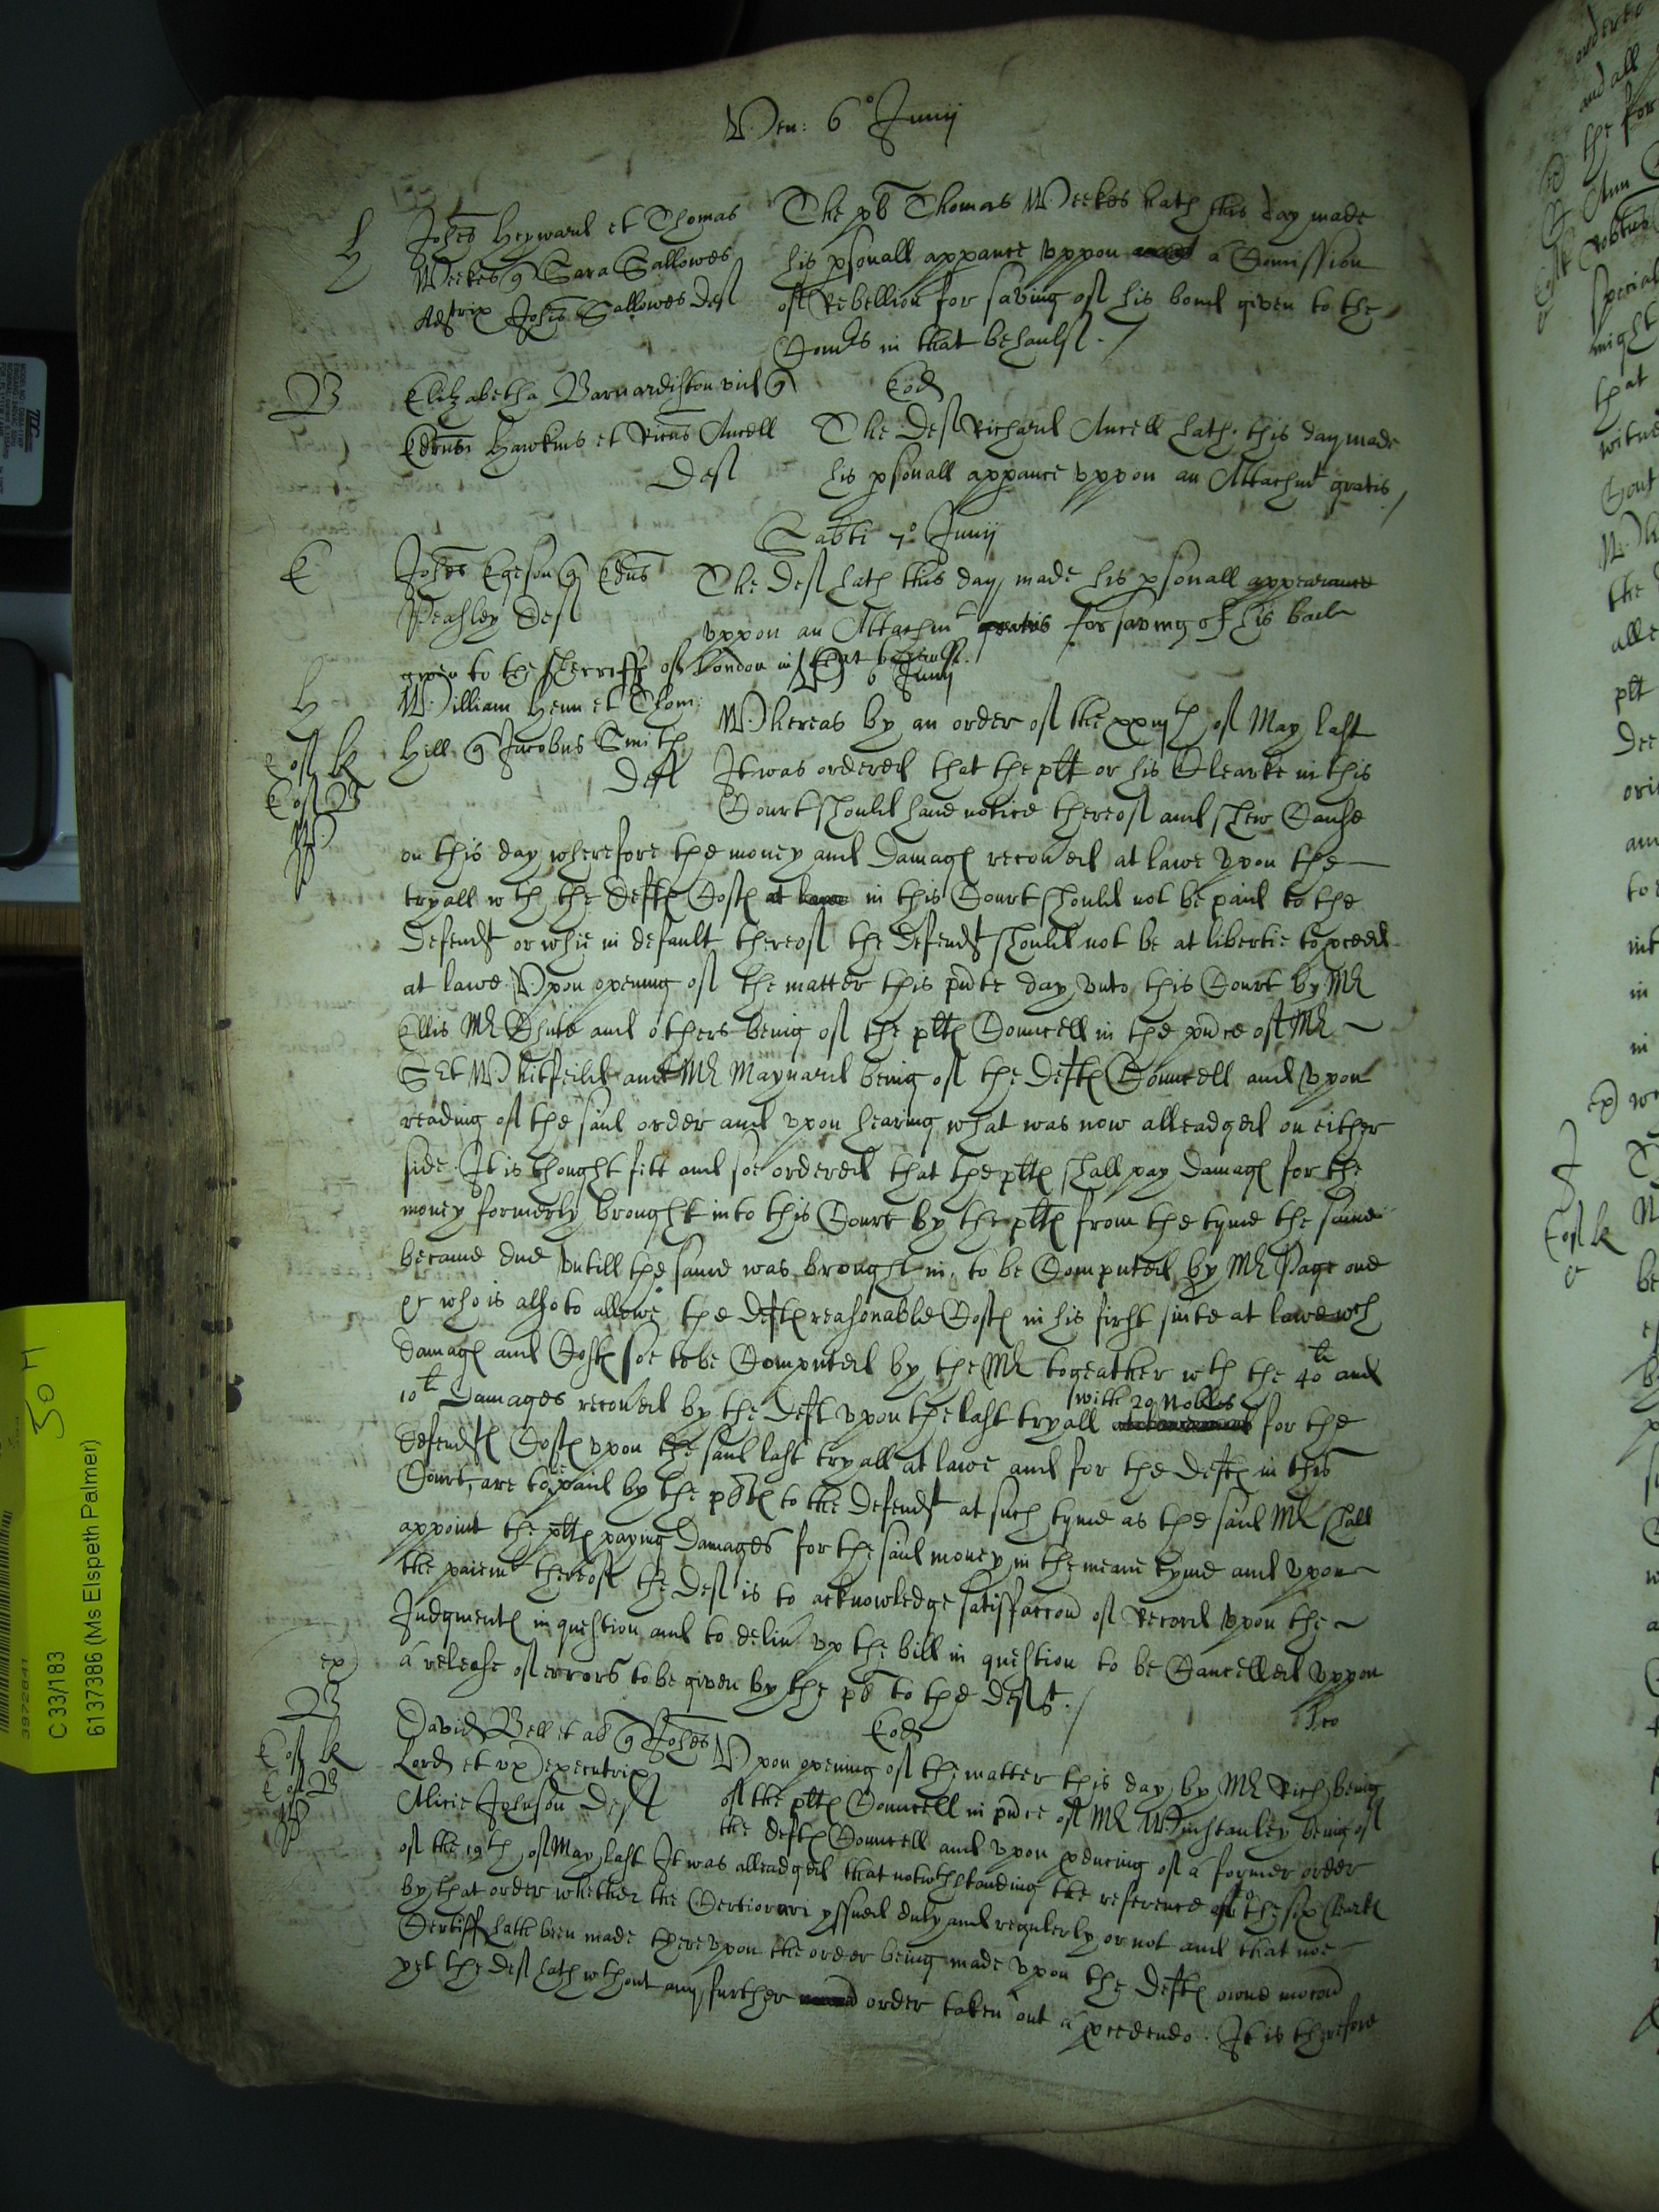 Ven: 6° Junij
H
Johes Heyward et Thomas
Weekes q Sara Sallowes
Adstrix Johis Sallowes def
The pb Thomas Weekes hath this day made
his psonall appance vppon a Comission
of Rebellion for saving of his bond given to the
Comrs in that behaulf. /
B
Elizabetha Barnardiston vid q
Edrus Hawkins et Ricus Ancell
Def
Eod
The Def Richard Ancell hath this day made
his psonall appance vppon an Attachmt gratis /
Sabti 7° Junij
E
Johes Egeson q Edus
Peashley Def
The Def hath this day made his psonall appearance
vppon an Attachmt gratis for saving of his baile
given to the Sherriffe of London in that behaulf.
V 6 Junij
H
William Henn et Thom:
Hill q Jacobus Smith
Deft
Whereas by an order of the xxiijth of May last
It was ordered that the ptt or his Clearke in this
Court should haue notice thereof and shew Cause
on this day wherefore the money and Damages recoued at lawe vpon the
tryall wth the Defts Costs at lawe in this Court should not be paid to the
Defendt or whie in default thereof the Defendt should not be at libertie to pceed
at lawe. Vpon opening of the matter this pnte day vnto this Court by Mr
Ellis Mr Chute and others being of the ptts Councell in the pnce of Mr
Sct Whitfeild and Mr Maynard being of the Defts Councell and vpon
reading of the said order and vpon hearing what was now alleadged on either
side. It is thought fitt and soe ordered that the ptts shall pay Damages for the
money formerly brought into this Court by the ptts from the tyme the same
became due vntill the same was brought in, to be Computed by Mr Page one
&c who is also to allowe the Defts reasonable Costs in his first suite at lawe wch
Damages and Costs soe to be Computed by the Mr togeather wth the 40li and
10li Damages recoued by the Deft vpon the last tryall with 20 Nobles for the
Defendts Costs vpon the said last tryall at lawe and for the Defts in this
Court, are to be paid by the pbts to the Defendt at such tyme as the said Mr shall
appoint the ptts paying Damages for the said money in the meane tyme and vpon
the paiemt thereof the Def is to acknowledge satisfaccon of Record vpon the
Judgments in question and to deliu vp the bill in question to be Cancelled vppon
a release of errors to be given by the pb to the Deft. /
ex
B
David Bell et al q Johes
Lord et vx executrix
Alicie Johnson Deft
Eod
Vpon opening of the matter this day by Mr Rich being
of the ptts Councell in pnce of Mr Winstanley being of
the Defts Councell and vpon pducing of a former order
of the 19th of May last It was alleadged that notwthstanding the reference to the six Clearks
by that order whether the Certiorari yssued duly and regulerly or not and that noe
Certiff hath been made therevpon the order being made vpon the Defts owne mocon
yet the Def hath wthout any further order taken out a pcedendo. It is therefore
C 33/183
6137386 (Ms Elspeth Palmer)
3972841